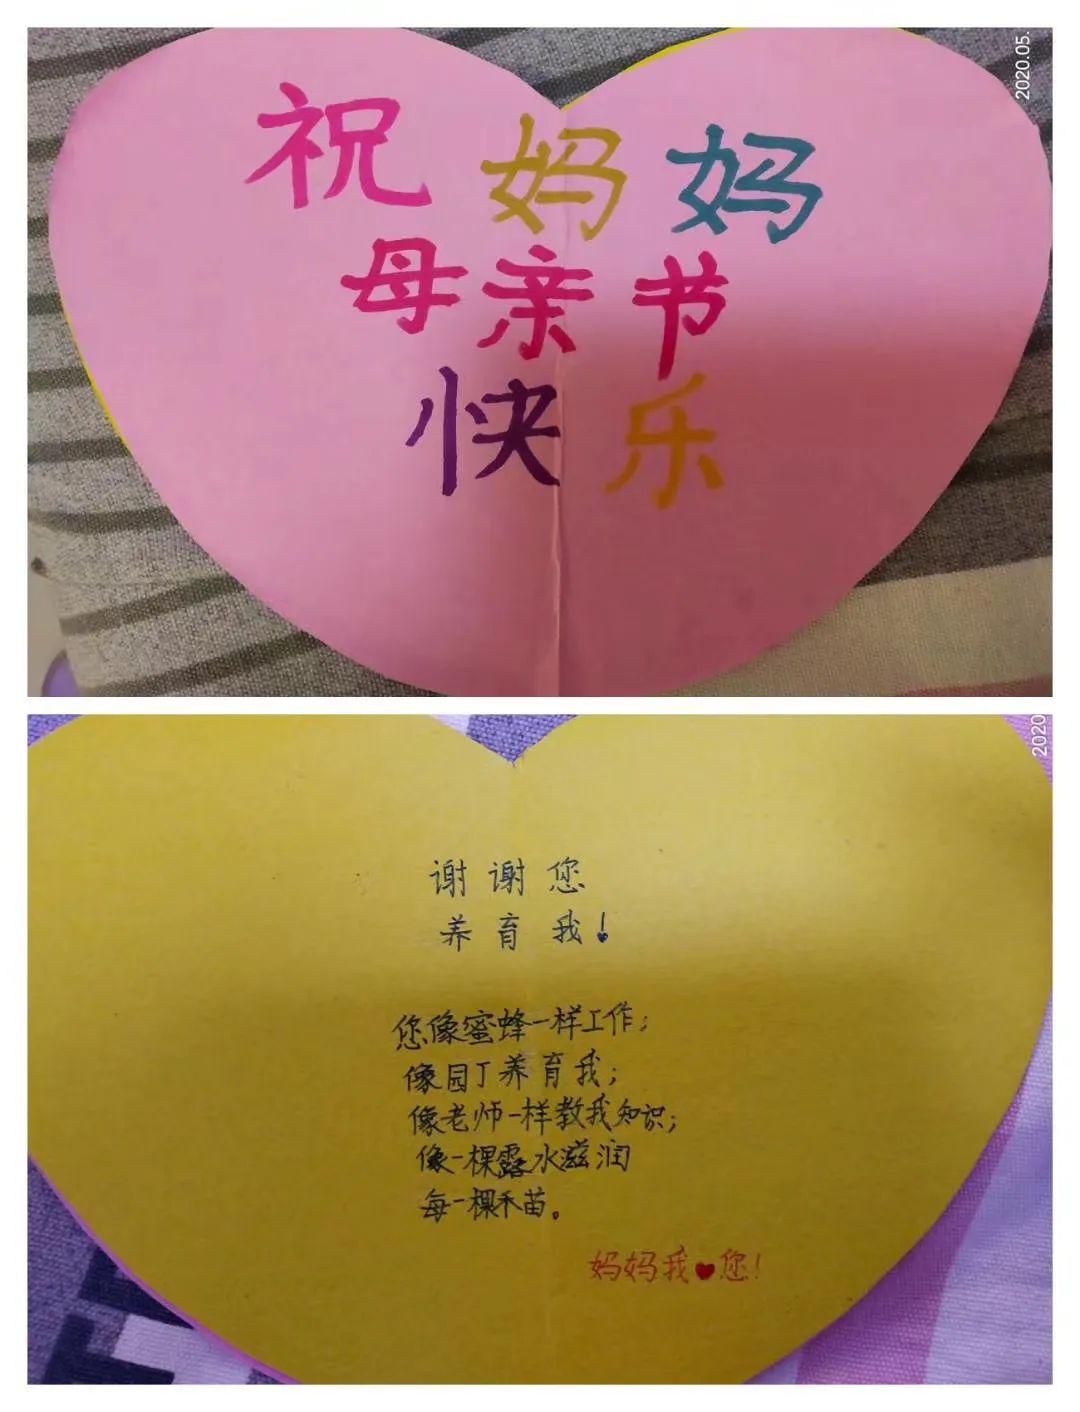 2020.05.
祝妈妈
母亲节
快乐
2020
谢谢您
养育我!
您像蜜蜂一样工作;
像园丁养育我;
像老师一样教我知识;
像一棵露水滋润
每一棵禾苗。
妈妈我♥您!